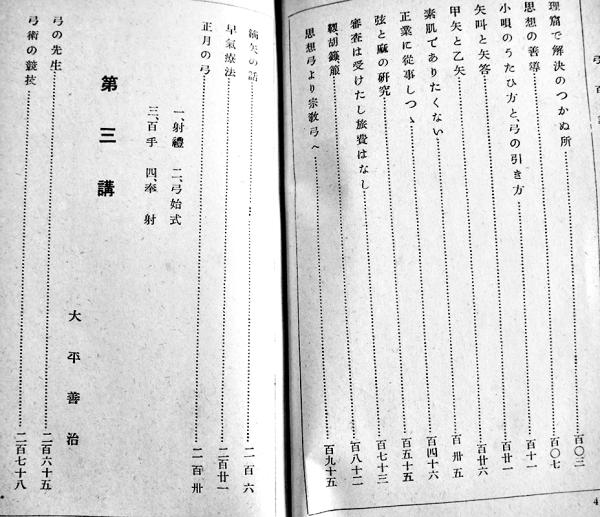 弓百講
理窟で解決のつかぬ所 百〇三
思想の善導 百〇七
小唄のうたひ方と、弓の引き方 百十一
矢叫と矢答 百廿一
甲矢と乙矢 百廿六
素肌でありたくない 百卅五
正業に從事しつゝ 百四十六
弦と麻の硏究 百五十五
審査は受けたし旅費はなし 百七十三
靫、胡簶、箙 百八十二
思想弓より宗敎弓へ 百九十五
4
矢の話 二百六
早氣療法 二百廿一
正月の弓 二百卅
一、射禮 二、弓始式
三、百手 四、奉射
第三講
大平善治
弓の先生 二百六十五
弓術の競技 二百七十八